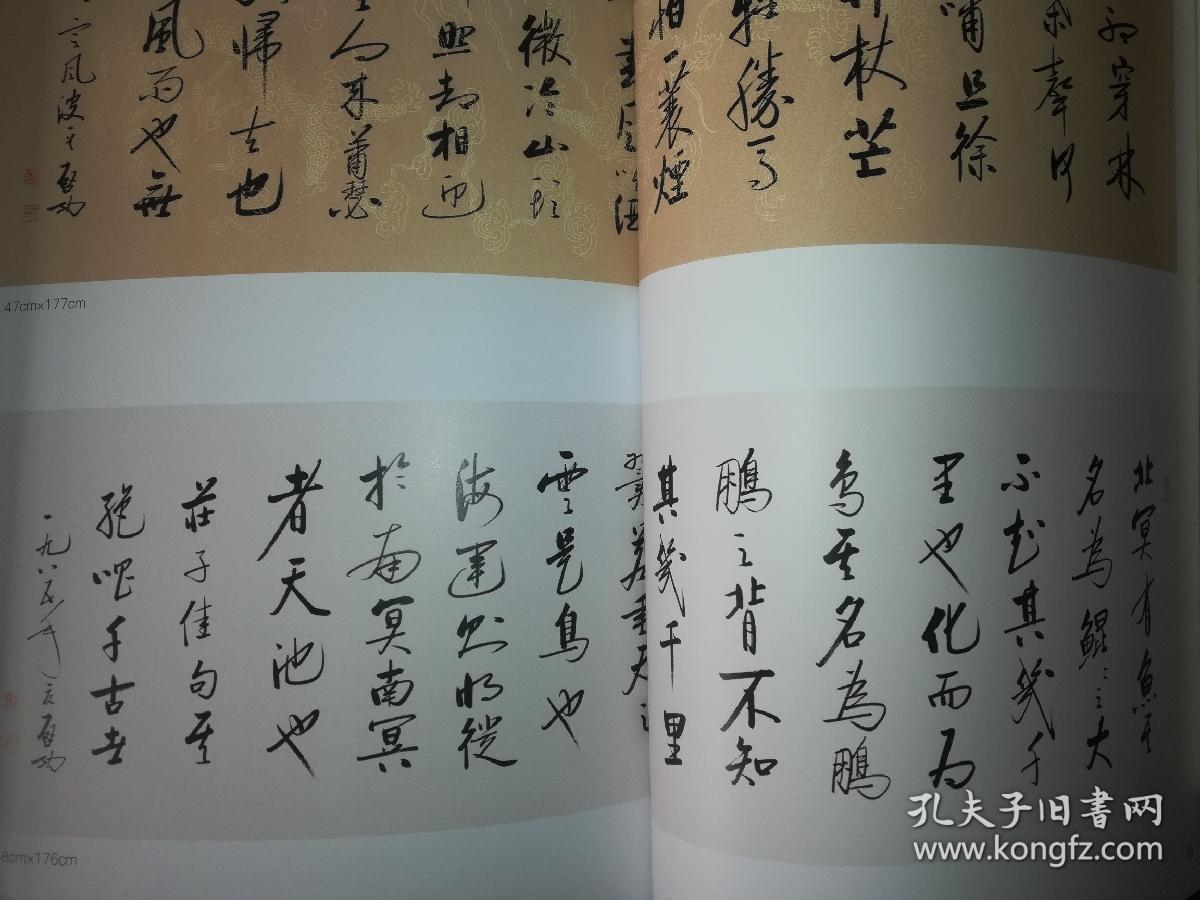 穿林
葉聲何
嘯且徐
杖芒
輕勝馬
怕一蓑煙
春風吹酒
微冷山頭
照却相迎
向来蕭瑟
歸去也
風雨也無
定風波 啓功
47cm×177cm
北冥有魚其
名為鯤〻之大
不知其幾千
里也化而為
鳥其名為鵬
鵬之背不知
其幾千里
翼若垂天之
雲是鳥也
海運則將徙
於南冥南冥
者天池也
莊子佳句其
千古
一九八五年夏 啓功
8cm×176cm
孔夫子旧书网
www.kongfz.com